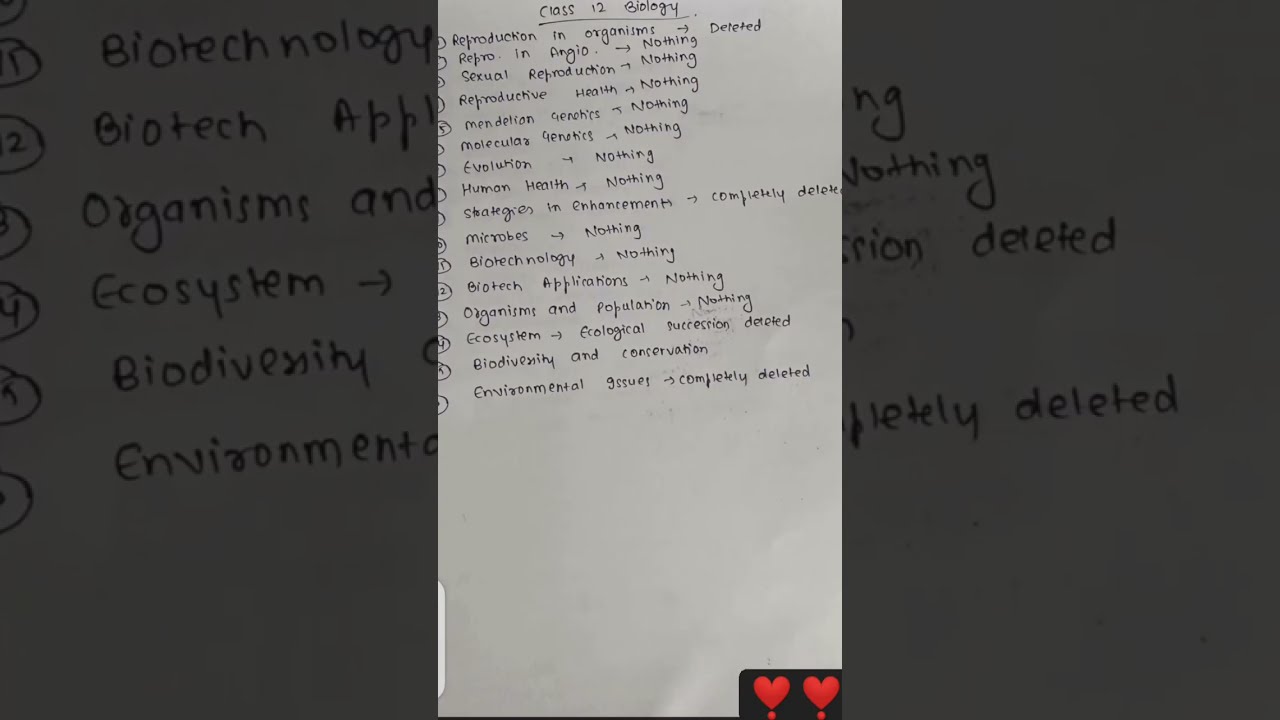 Class 12 Biology
Reproduction in organisms → Deleted
Repro. in Angio. → Nothing
Sexual Reproduction → Nothing
Reproductive Health → Nothing
5 mendelian Genetics → Nothing
molecular Genetics → Nothing
Evolution → Nothing
Human Health → Nothing
Strategies in enhancements → completely delete
microbes → Nothing
11 Biotechnology → Nothing
12 Biotech Applications → Nothing
3 Organisms and Population → Nothing
14 Ecosystem → Ecological succession deleted
Biodiversity and conservation
Environmental Issues → completely deleted